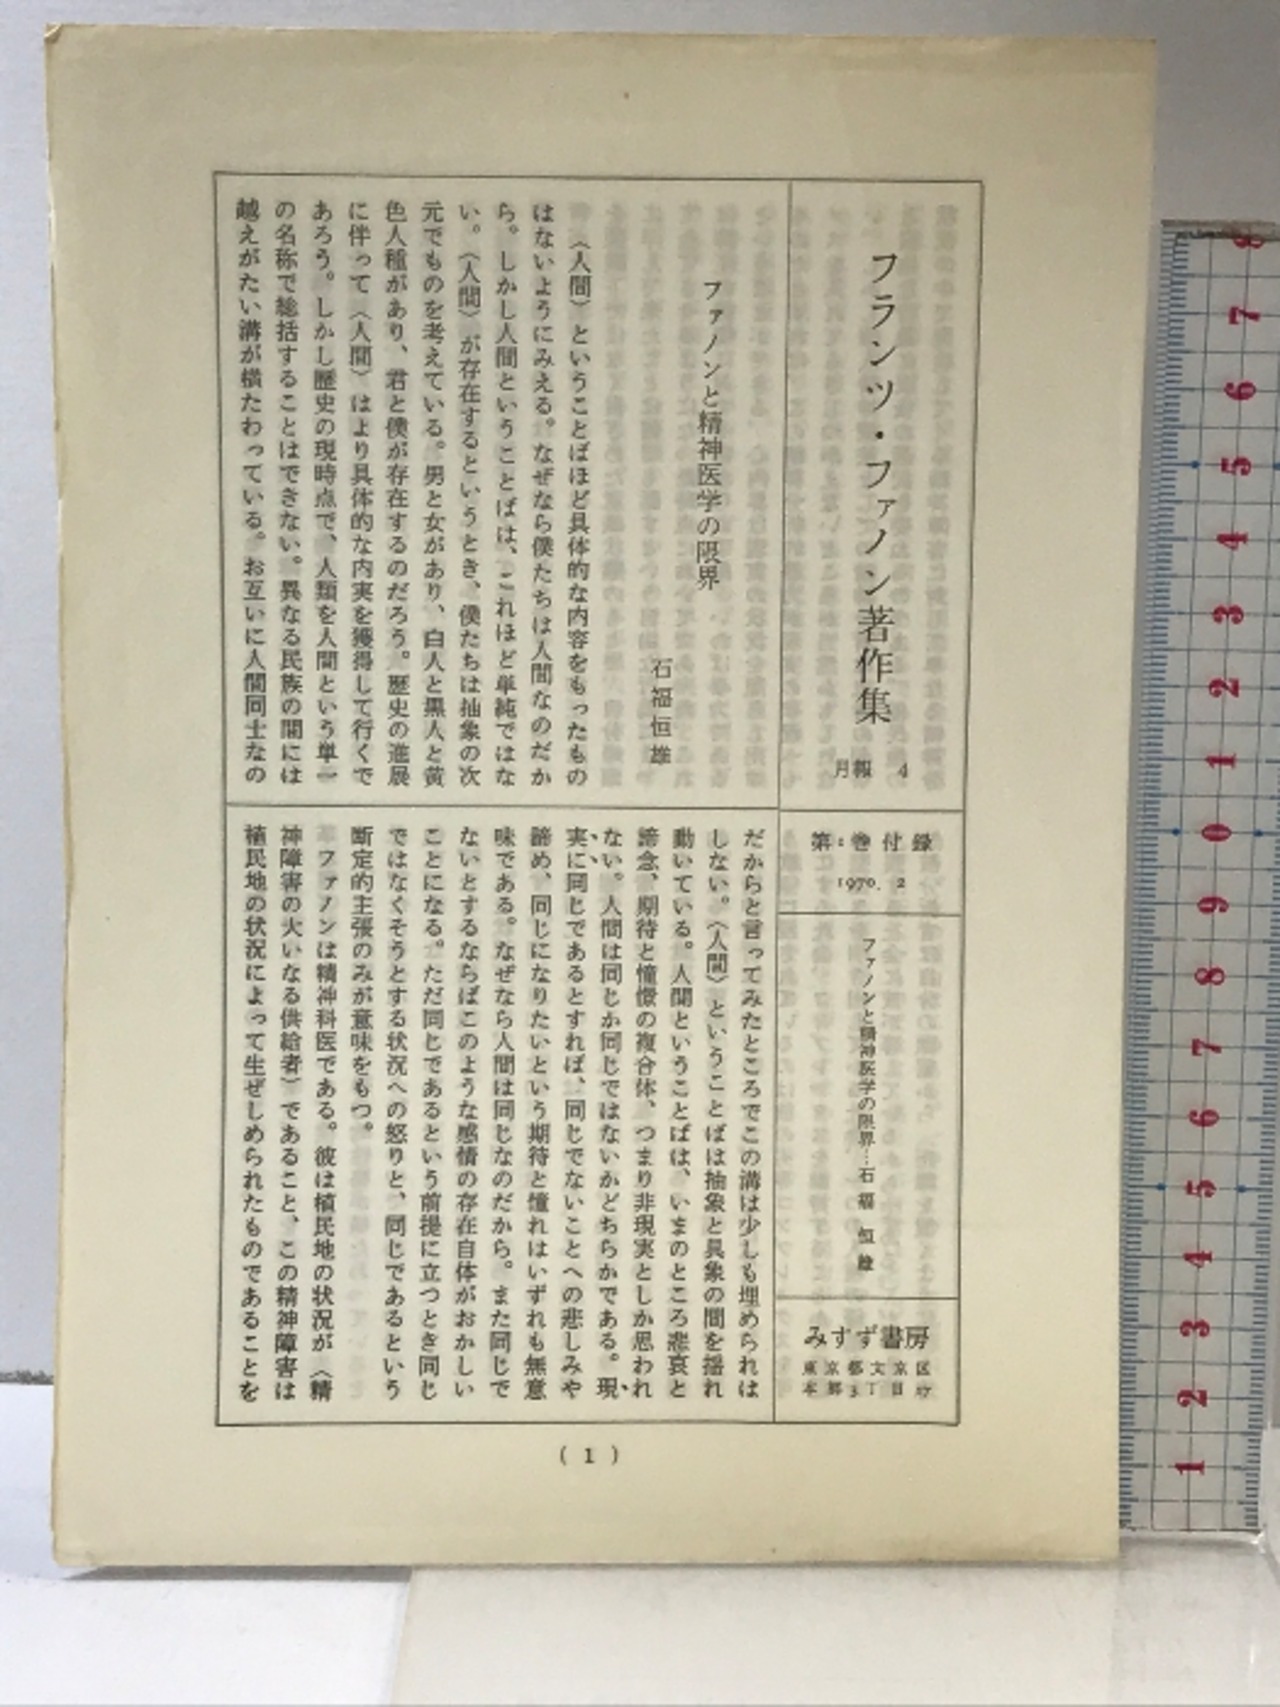 フランツ・ファノン著作集
月報 4
第 巻付録
1970. 2
ファノンと精神医学の限界…石福 恒雄
みすず書房
東京都文京区
本郷3丁目17
ファノンと精神医学の限界
石福恒雄
〈人間〉ということばほど具体的な内容をもったもの
はないようにみえる。なぜなら僕たちは人間なのだか
ら。しかし人間ということばは、これほど単純ではな
い。〈人間〉が存在するというとき、僕たちは抽象の次
元でものを考えている。男と女があり、白人と黒人と黄
色人種があり、君と僕が存在するのだろう。歴史の進展
に伴って〈人間〉はより具体的な内実を獲得して行くで
あろう。しかし歴史の現時点で、人類を人間という単一
の名称で総括することはできない。異なる民族の間には
越えがたい溝が横たわっている。お互いに人間同士なの
だからと言ってみたところでこの溝は少しも埋められは
しない。〈人間〉ということばは抽象と具象の間を揺れ
動いている。人間ということばは、いまのところ悲哀と
諦念、期待と憧憬の複合体、つまり非現実としか思われ
ない。人間は同じか同じではないかどちらかである。現
実に同じであるとすれば、同じでないことへの悲しみや
諦め、同じになりたいという期待と憧れはいずれも無意
味である。なぜなら人間は同じなのだから。また同じで
ないとするならばこのような感情の存在自体がおかしい
ことになる。ただ同じであるという前提に立つとき同じ
ではなくそうとする状況への怒りと、同じであるという
断定的主張のみが意味をもつ。
ファノンは精神科医である。彼は植民地の状況が〈精
神障害の大いなる供給者〉であること、この精神障害は
植民地の状況によって生ぜしめられたものであることを
( 1 )
8
7
6
5
4
3
2
1
0
9
8
7
6
5
4
3
2
1